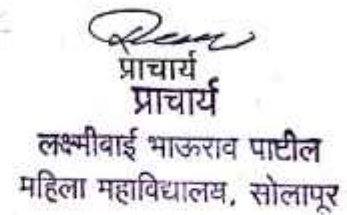 प्राचार्य
प्राचार्य
लक्ष्मीबाई भाऊराव पाटील
महिला महाविद्यालय, सोलापूर